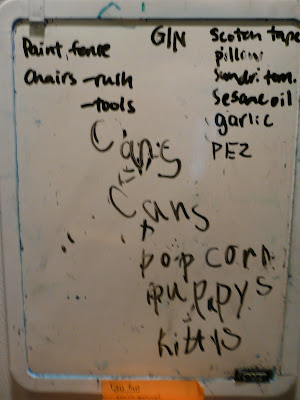 Paint fence
Chairs - rush
- tools
G/N
Scotch tape
pillow
Sundri tom.
Sesame oil
garlic
PEZ
Cans
Cans
popcorn
puppys
kittys